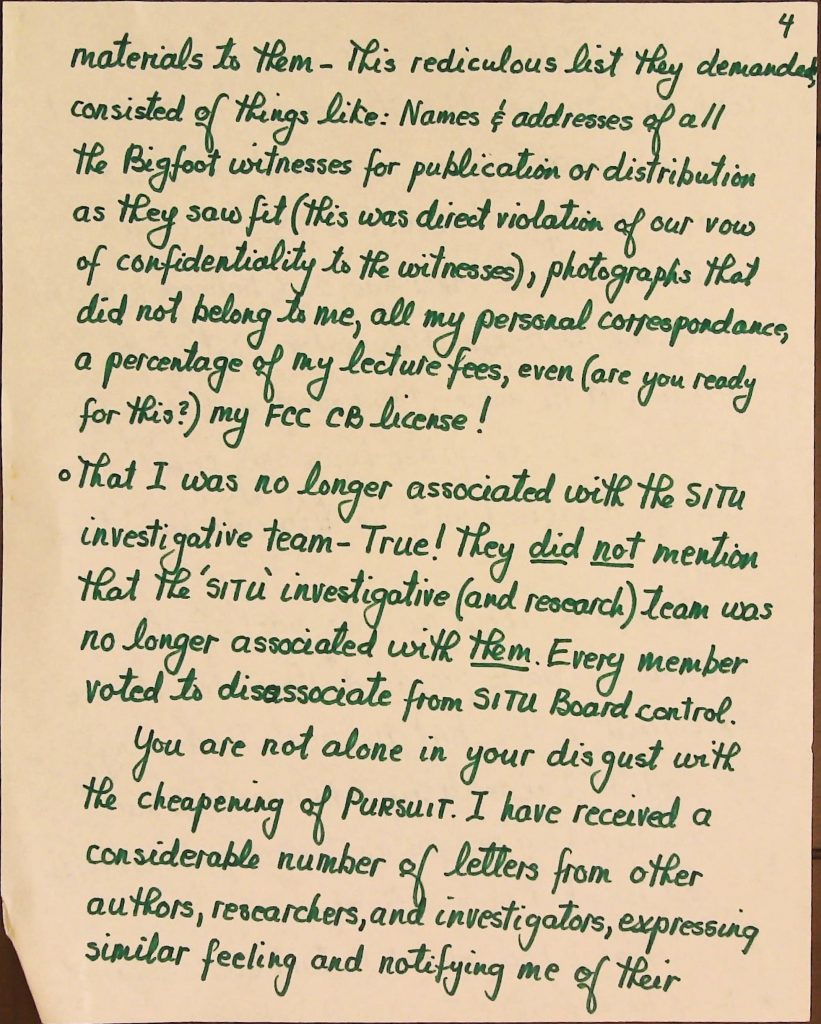 4
materials to them - This rediculous list they demanded,
consisted of things like: Names & addresses of all
the Bigfoot witnesses for publication or distribution
as they saw fit (this was direct violation of our vow
of confidentiality to the witnesses), photographs that
did not belong to me, all my personal correspondance,
a percentage of my lecture fees, even (are you ready
for this?) my FCC CB license!
° That I was no longer associated with the SITU
investigative team - True! They did not mention
that the 'SITU' investigative (and research) team was
no longer associated with them. Every member
voted to disassociate from SITU Board control.
You are not alone in your disgust with
the cheapening of PURSUIT. I have received a
considerable number of letters from other
authors, researchers, and investigators, expressing
similar feeling and notifying me of their